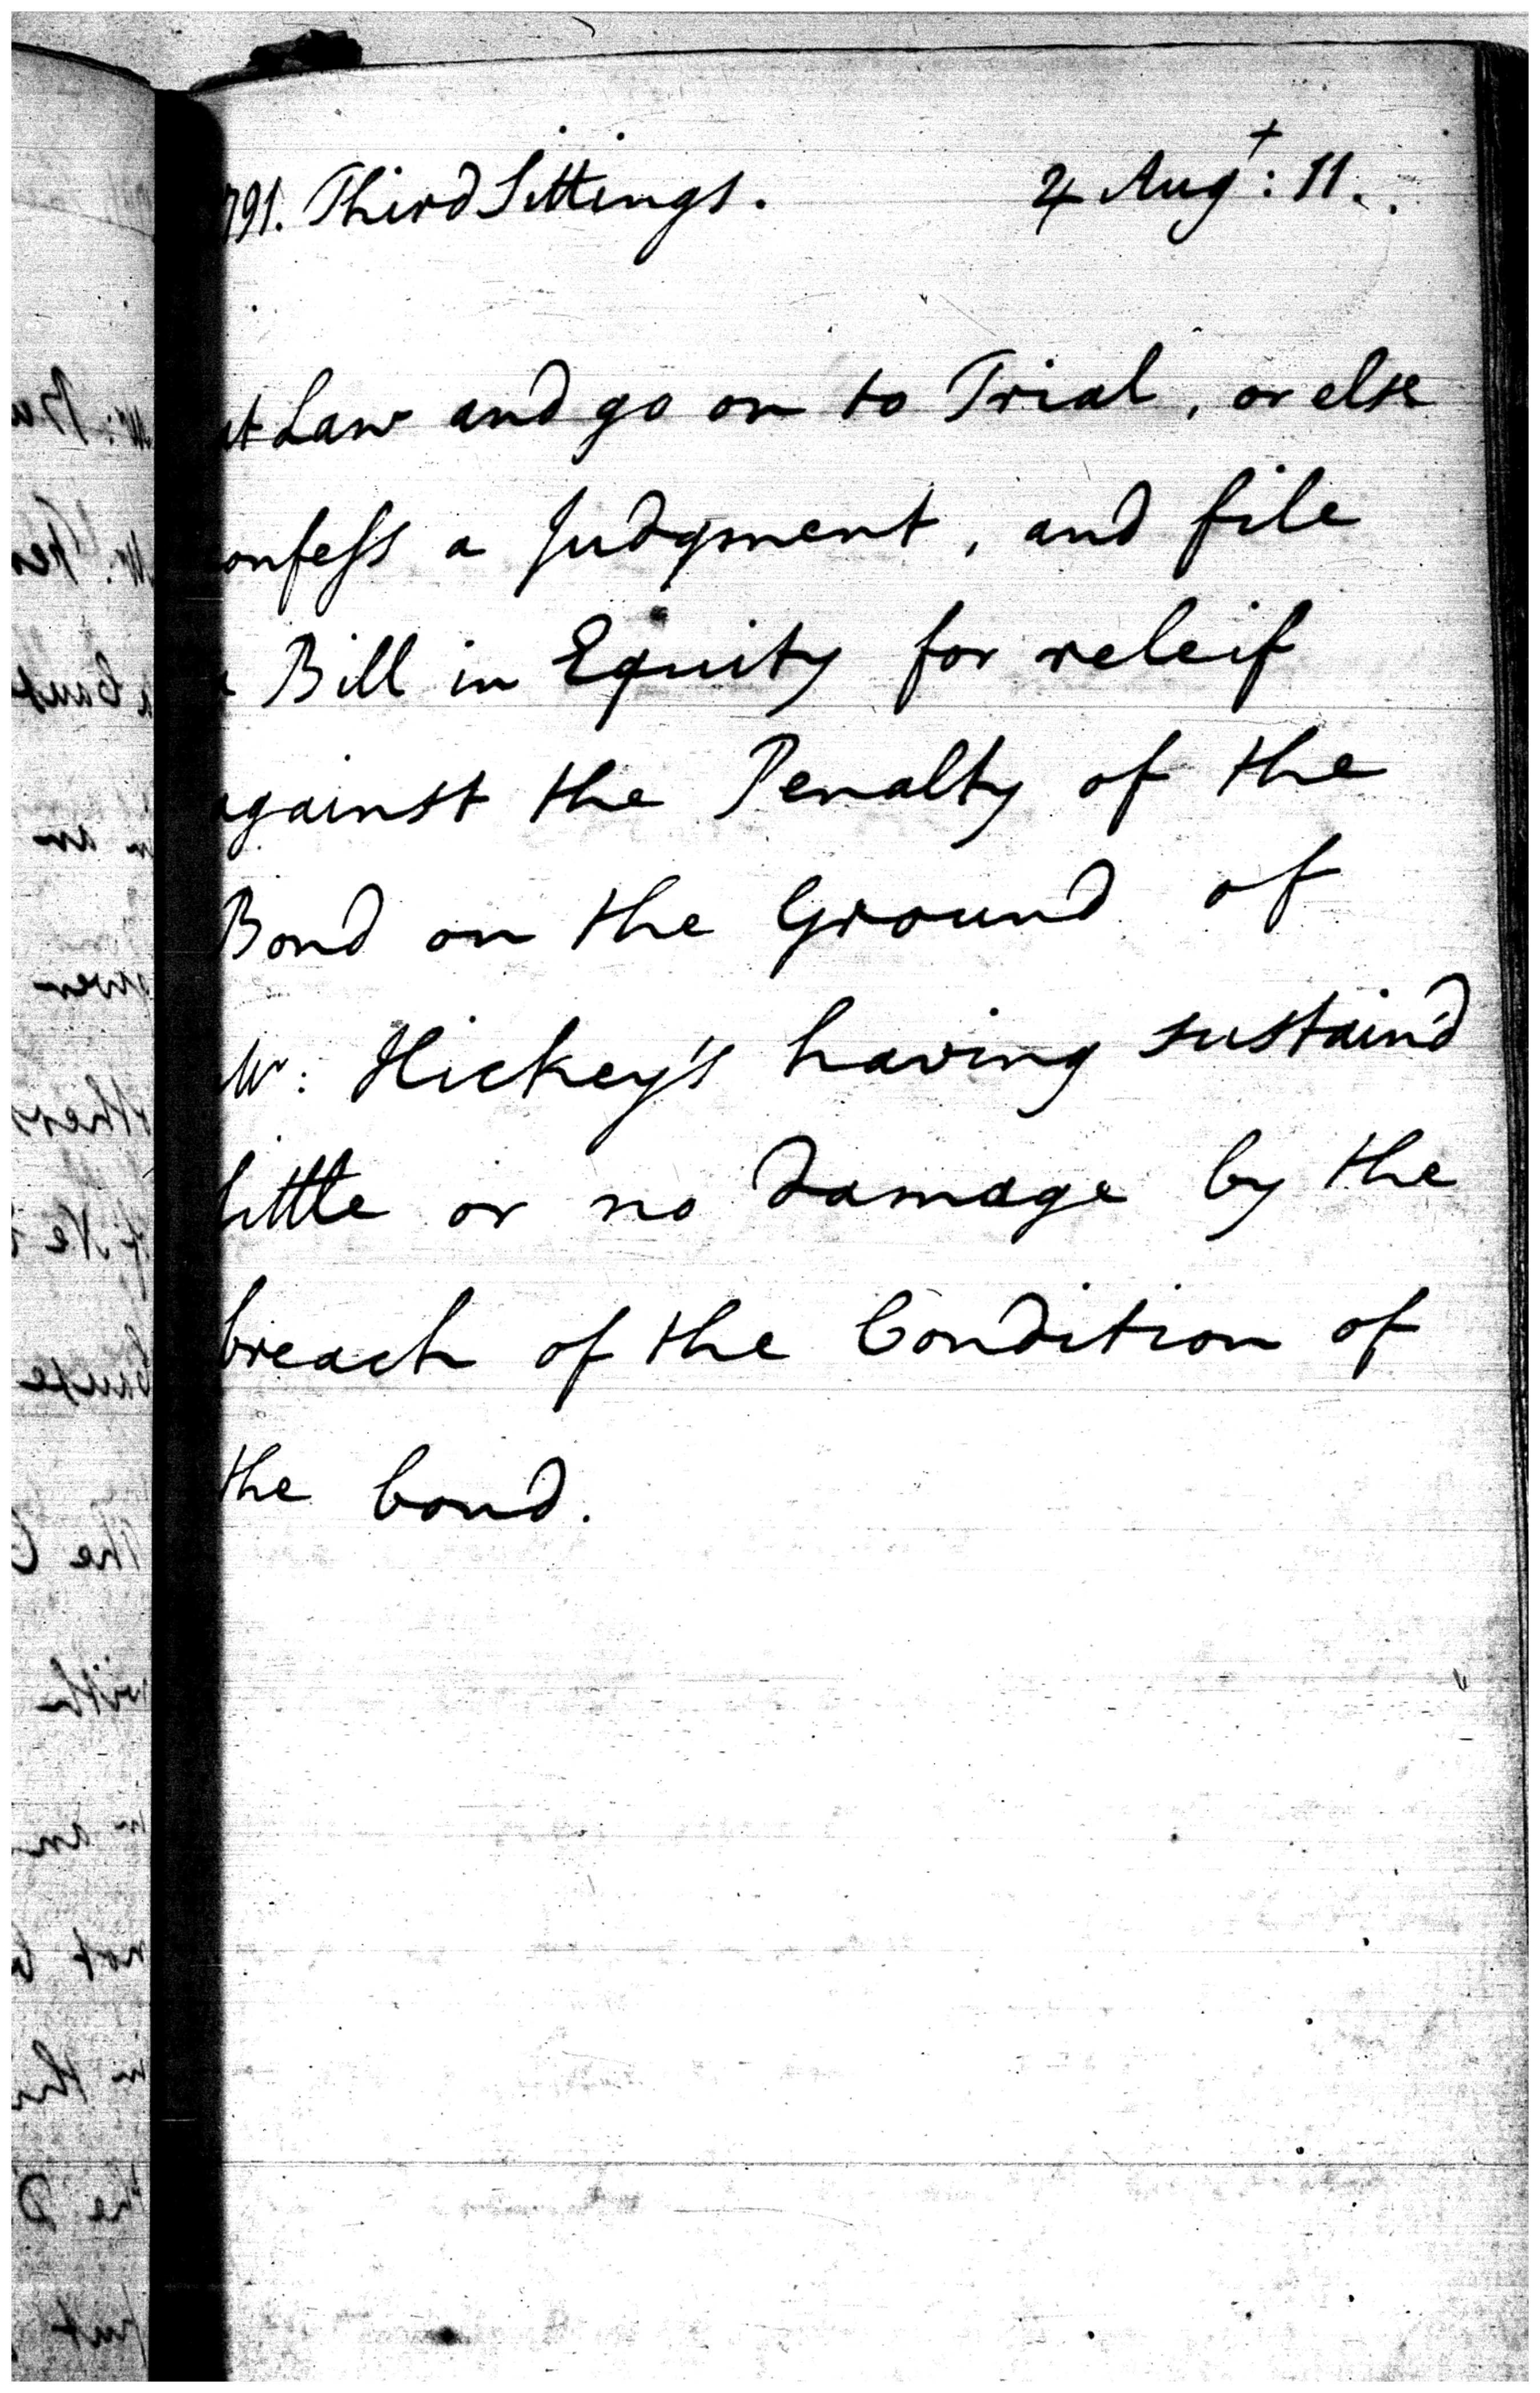 791. Third Sittings. 4 Augt: 11.
at Law and go on to Trial, or else
onfess a Judgment, and file
a Bill in Equity for releif
against the Penalty of the
Bond on the Ground of
Mr: Hickey's having sustain'd
little or no Damage by the
breach of the Condition of
the bond.